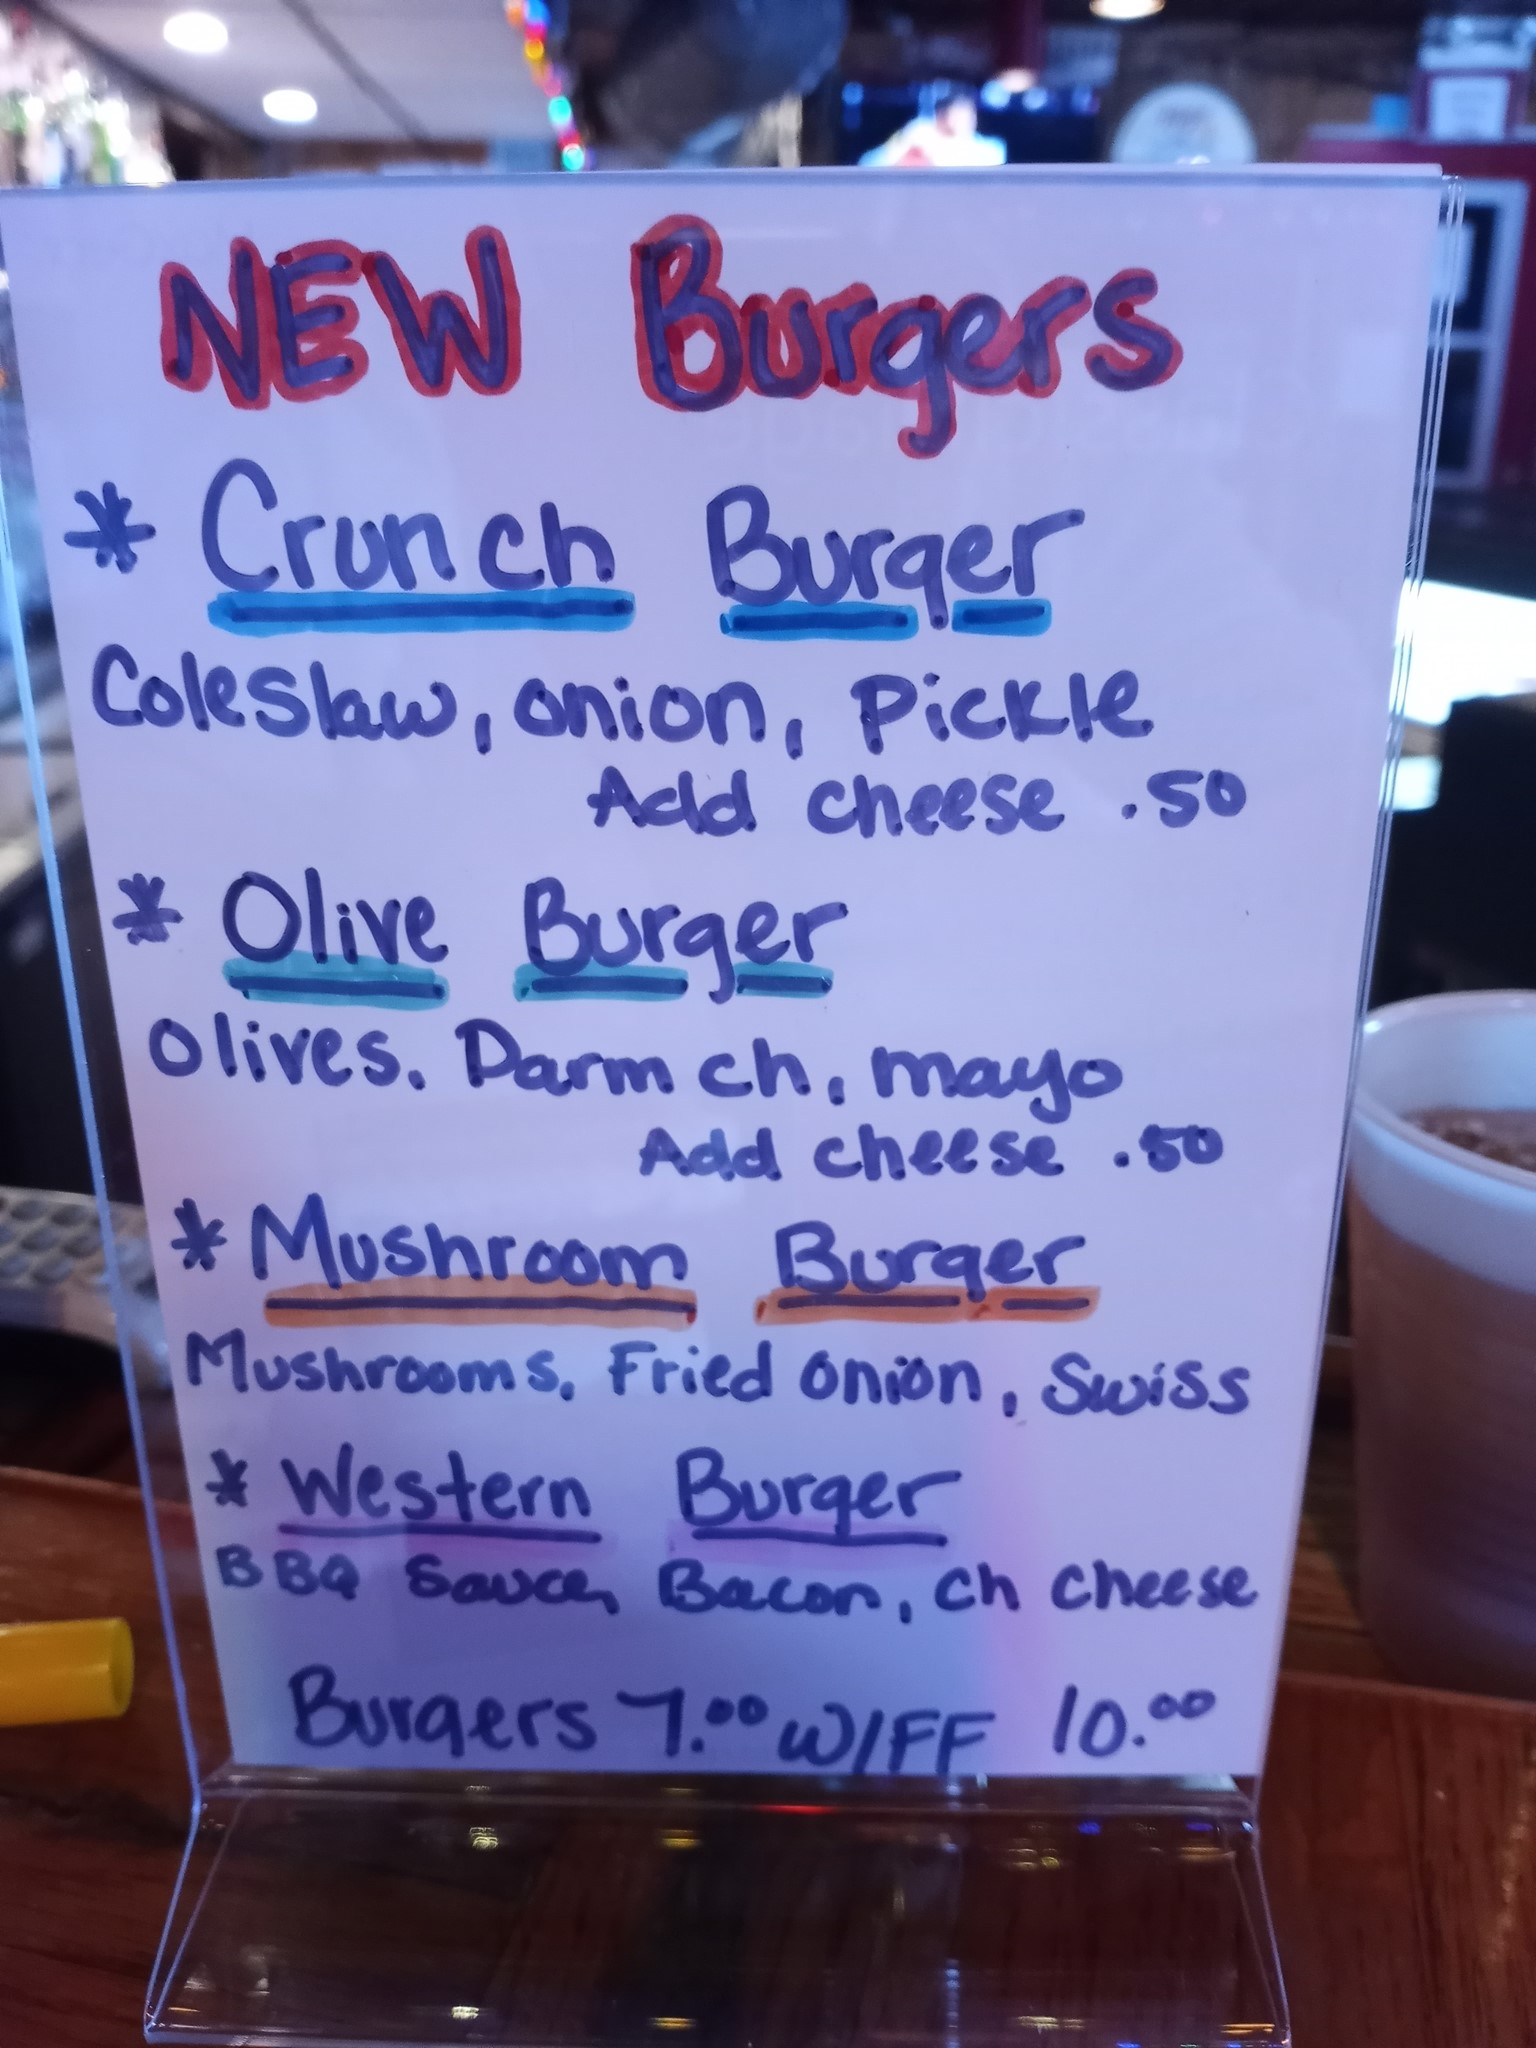 NEW Burgers
* Crunch Burger
Coleslaw, onion, Pickle
Add cheese .50
* Olive Burger
Olives. Parm ch, mayo
Add cheese .50
* Mushroom Burger
Mushrooms, Fried onion, Swiss
* Western Burger
BBQ Sauce, Bacon, ch cheese
Burgers 7.00 W/FF 10.00